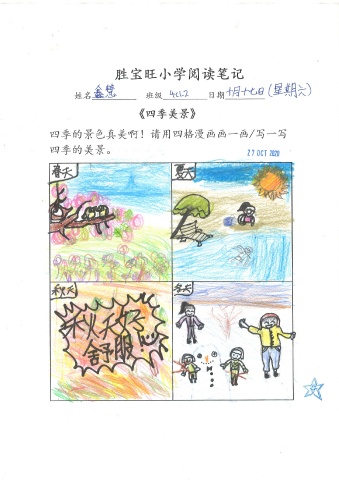 胜宝旺小学阅读笔记
姓名 鑫慧 班级 4CL2 日期 十月十七日(星期六)
《四季美景》
四季的景色真美啊！请用四格漫画画一画/写一写
四季的美景。
27 OCT 2020
春天
夏天
秋天
秋天好
舒服!
冬天